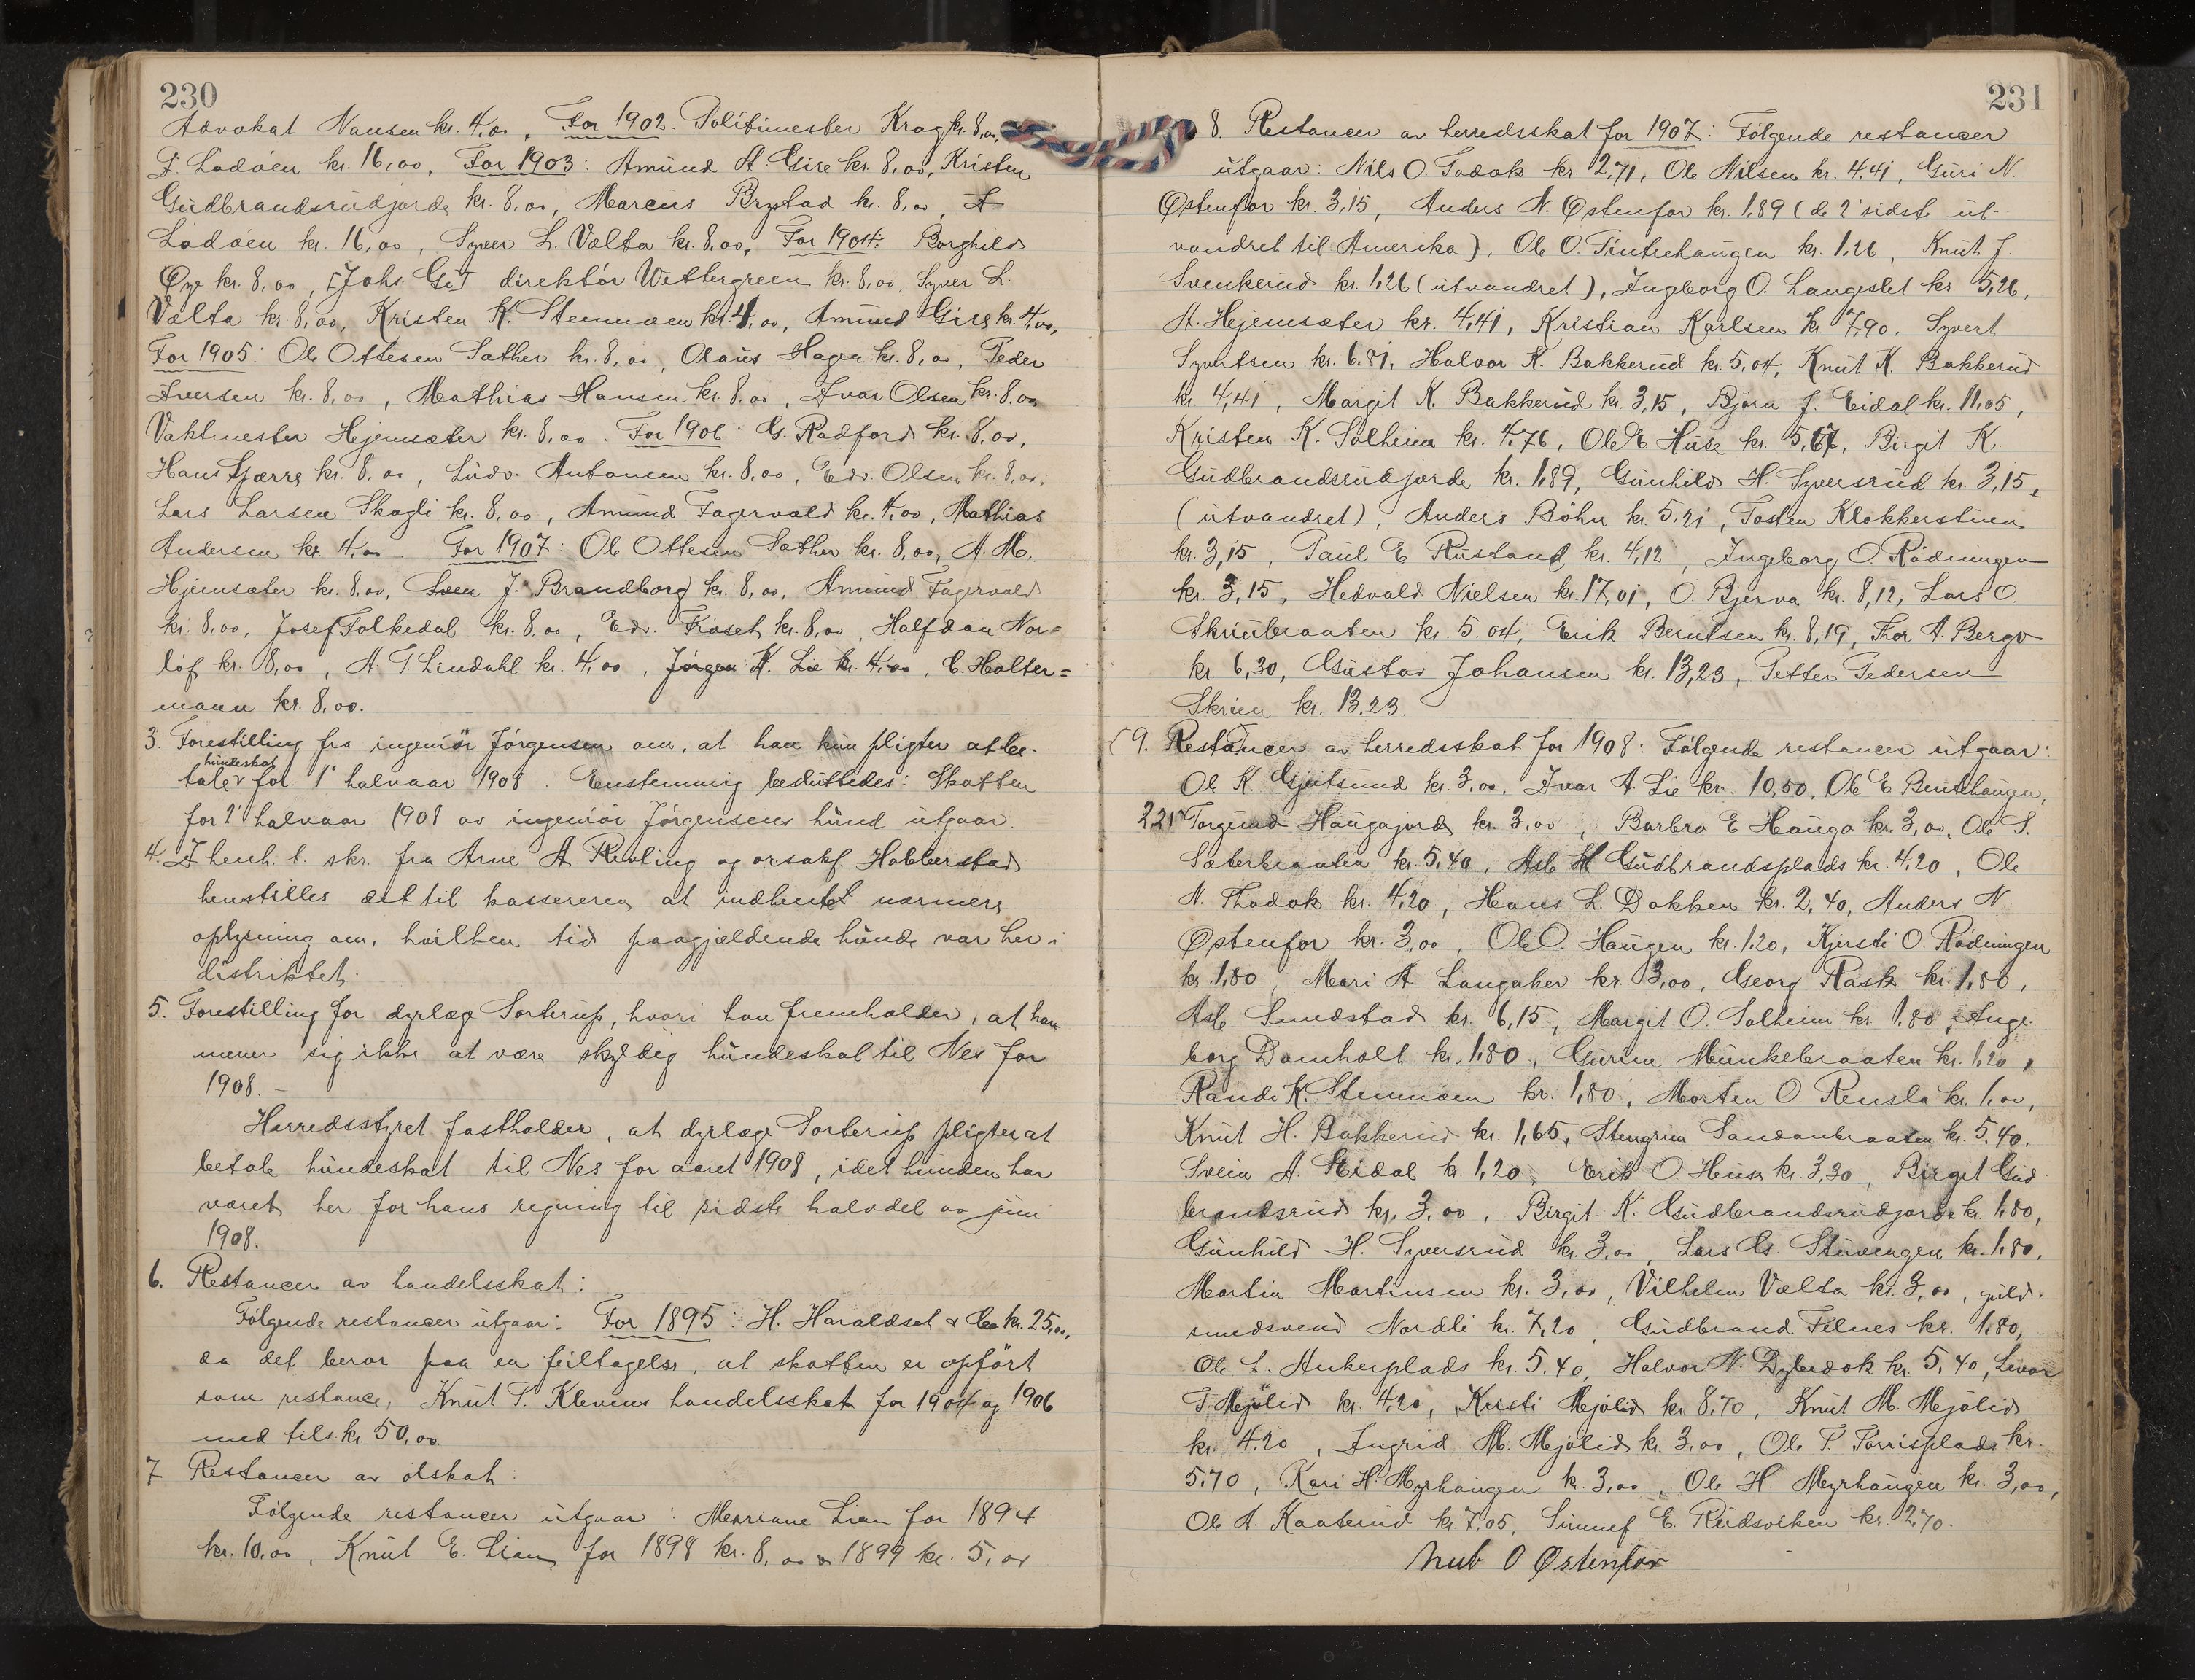 230
Advokat Nansen kr. 4,00, For 1902. Politimester Krag kr. 8,00,
Lodøen kr. 16,00, For 1903: Amund A Gire kr. 8,00, Kristen
Gudbrandsrudjorde kr. 8,00, Marcus Brystad kr. 8,00,
Lodøen kr. 16,00, Syver L. Vælta kr. 8,00, For 1904: Borghild
Øye kr. 8,00, direktør Wettergreen kr. 8,00, Syver L.
Vælta kr. 8,00, Kristen K. Stenmoen kr. 4,00, Amund Gire kr. 4,00,
For 1905: Ole Ottesen Sæther kr. 8,00, Olaus Hagen kr. 8,00, Peder
Iversen kr. 8,00, Mathias Hansen kr. 8,00, Ivar Olsen kr. 8,00
Vaktmester Hjemsæter kr. 8,00. For 1906: G. Radford kr. 8,00,
Hans kr. 8,00, Ludv. Antonsen kr. 8,00, Edv. Olsen kr. 8,00,
Lars Larsen Skogli kr. 8,00, Amund Fagervold kr. 4,00, Mathias
Andersen kr. 4,00. For 1907: Ole Ottesen Sæther kr. 8,00, A. M.
Hjemsæter kr. 8,00, Sven J. Brandborg kr. 8,00, Amund Fagervold
kr. 8,00, Josef Folkedal kr. 8,00, Edv. kr. 8,00, Halfdan Nor=
løf kr. 8,00, A. T. Lindahl kr. 4,00, Jørgen K. Lie kr. 4,00, C. Holter=
mann kr. 8,00.
3. Forestilling fra ingeniør Jørgensen om, at han kun pligter at be-
hundeskat
tale for 1' halvaar 1908. Enstemmig besluttedes: Skatten
for 2' halvaar 1908 av ingeniør Jørgensens hund utgaar.
4. I henh. t. skr. fra Arne A Revling og orsakf. Habberstad
henstilles det til kassereren at indhentet nærmere
oplysning om, hvilken tid paagjældende hunde var her i
distriktet.
5. Forestilling for dyrlæge Sorterup, hvori han fremholder, at han
mener sig ikke at være skyldig hundeskat til Nes for
1908. –
Herredsstyret fastholder, at dyrlæge Sorterup pligter at
betale hundeskat til Nes for aaret 1908, idet hunden har
været her for hans regning til sidste halvdel av juni
1908.
6. Restancer av handelsskat:
Følgende restancer utgaar: For 1895: H. Haraldset & Co kr. 25,00,
da det beror paa en feiltagelse, at skatten er opført
som restance, Knut T. Klevens handelsskat for 1904 og 1906
med tils. kr. 50,00.
7 Restancer av ølskat:
Følgende restancer utgaar: Marriane Lian for 1894
kr. 10,00, Knut E. Lian for 1898 kr. 8,00 & 1899 kr. 5,00
231
8. Restancer av herredsskat for 1907: Følgende restancer
utgaar: Nils O. Todok kr. 2,71, Ole Nilsen kr. 4,41, Guri N.
Østenfor kr. 3,15, Anders N. Østenfor kr. 1,89 (de 2' sidste ut-
vandret til Amerika), Ole O. Tintrehaugen kr. 1,26, Knut J.
Svenkerud kr. 1,26 (utvandret), Ingeborg O. Langeslet kr. 5,26,
A. Hejemsæter kr. 4,41, Kristian Karlsen kr. 7,90, Syvert
Syvertsen kr. 6.81, Halvor K. Bakkerud kr. 5,04, Knut K. Bakkerud
kr. 4,41, Margit K. Bakkerud kr. 3,15, Bjørn J. Eidal kr. 11,05,
Kristen K. Solheim kr. 4,76, Ole E Huse kr. 5,67, Birgit K.
Gudbrandsrudjorde kr. 1,89, Gunhild H. Syversrud kr. 3,15,
(utvandret), Anders Bøhn kr. 5.21, Tosten Klokkerstuen
kr. 3,15, Paul E Rustand kr. 4,12, Ingeborg O. Rødningen
kr. 3,15, Hedvald Nielsen kr. 17,01, O. Bjerva kr. 8,12, Lars O.
Skrinbraaten kr. 5.04, Erik Berntsen kr. 8,19, Thor A. Bergo
kr. 6,30, Gustav Johansen kr. 13,23, Petter Pedersen
Skrien kr. 13.23.
9. Restancer av herredsskat for 1908: Følgende restancer utgaar:
Ole K. Gjeitsund kr. 3,00, Ivar A. Lie kr. 10,50, Ole E Bentehaugen,
2,21 Torgund Haugajorde kr. 3,00, Barbra E Hauga kr. 3,00, Ole S.
Sæterbraaten kr. 5,40, Asle H Gudbrandsplads kr. 4,20, Ole
N. Thodok kr. 4,20, Hans L. Dokken kr. 2,40, Anders N
Østenfor kr. 3,00, Ole O. Haugen kr. 1.20, Kjersti O. Rødningen
kr. 1,80, Mari A. Langaker kr. 3,00, Georg Rask kr. 1,80,
Asle Sundstad kr. 6,15, Margit O. Solheim kr. 1,80, Inge-
borg Domholt kr. 1,80, Gurine Munkebraaten kr. 1,20,
Randi K. Stenmoen kr. 1,80, Morten O. Rensla kr. 1,00,
Knut H. Bakkerud kr. 1,65, Stengrim Sandanbraaten kr. 5,40,
Svein A. Eidal kr. 1,20, Erik O Huse kr. 3,30, Birgit Gud-
brandsrud kr. 3,00, Birgit K. Gudbrandsrudjorde kr. 1,80,
Gunhild H. Syversrud kr. 3,00, Lars Gs. Stuvengen kr. 1,80,
Martin Martinsen kr. 3,00, Vilhelm Vælta kr. 3,00, guld-
smedsvend Nordli kr. 7,20, Gudbrand Felnes kr. 1,80,
Ole L. Ankerplads kr. 5,40, Halvor N. kr. 5,40, Levor
T. Mjølid kr. 4,20, Kristi Mjølid kr. 8,70, Knut M. Mjølid
kr. 4.20, Ingrid M. Mjølid kr. 3,00, Ole T. Torrisplads kr.
5,70, Kari H. Myrhaugen kr. 3,00, Ole H. Myrhaugen kr. 3,00,
Ole A. Kaaterud kr. 7,05, Sunnef E. Rudsviken kr. 2,70.
Knut O Østenfor